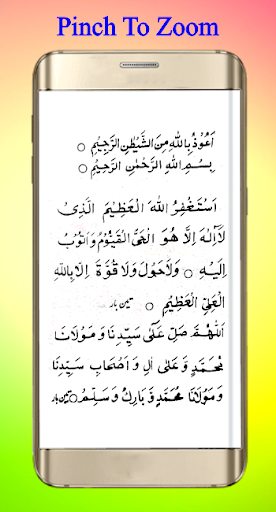 Pinch To Zoom
اَعُوْذُ بِاللّٰهِ مِنَ الشَّيْطٰنِ الرَّجِيْمِ ○
بِسْمِ اللّٰهِ الرَّحْمٰنِ الرَّحِيْمِ ○
اَسْتَغْفِرُ اللّٰهَ الْعَظِيْمَ الَّذِىْ
لَآ اِلٰهَ اِلَّا هُوَ الْحَىُّ الْقَيُّوْمُ وَاَتُوْبُ
اِلَيْهِ ○ وَلَاحَوْلَ وَلَا قُوَّةَ اِلَّا بِاللّٰهِ
الْعَلِىِّ الْعَظِيْمِ ○ تین بار
اَللّٰهُمَّ صَلِّ عَلٰى سَيِّدِنَا وَ مَوْلَانَا
مُحَمَّدٍ وَّ عَلٰى اٰلِ وَ اَصْحَابِ سَيِّدِنَا
وَ مَوْلَانَا مُحَمَّدٍ وَّ بَارِكْ وَ سَلِّمْ ○ تین بار